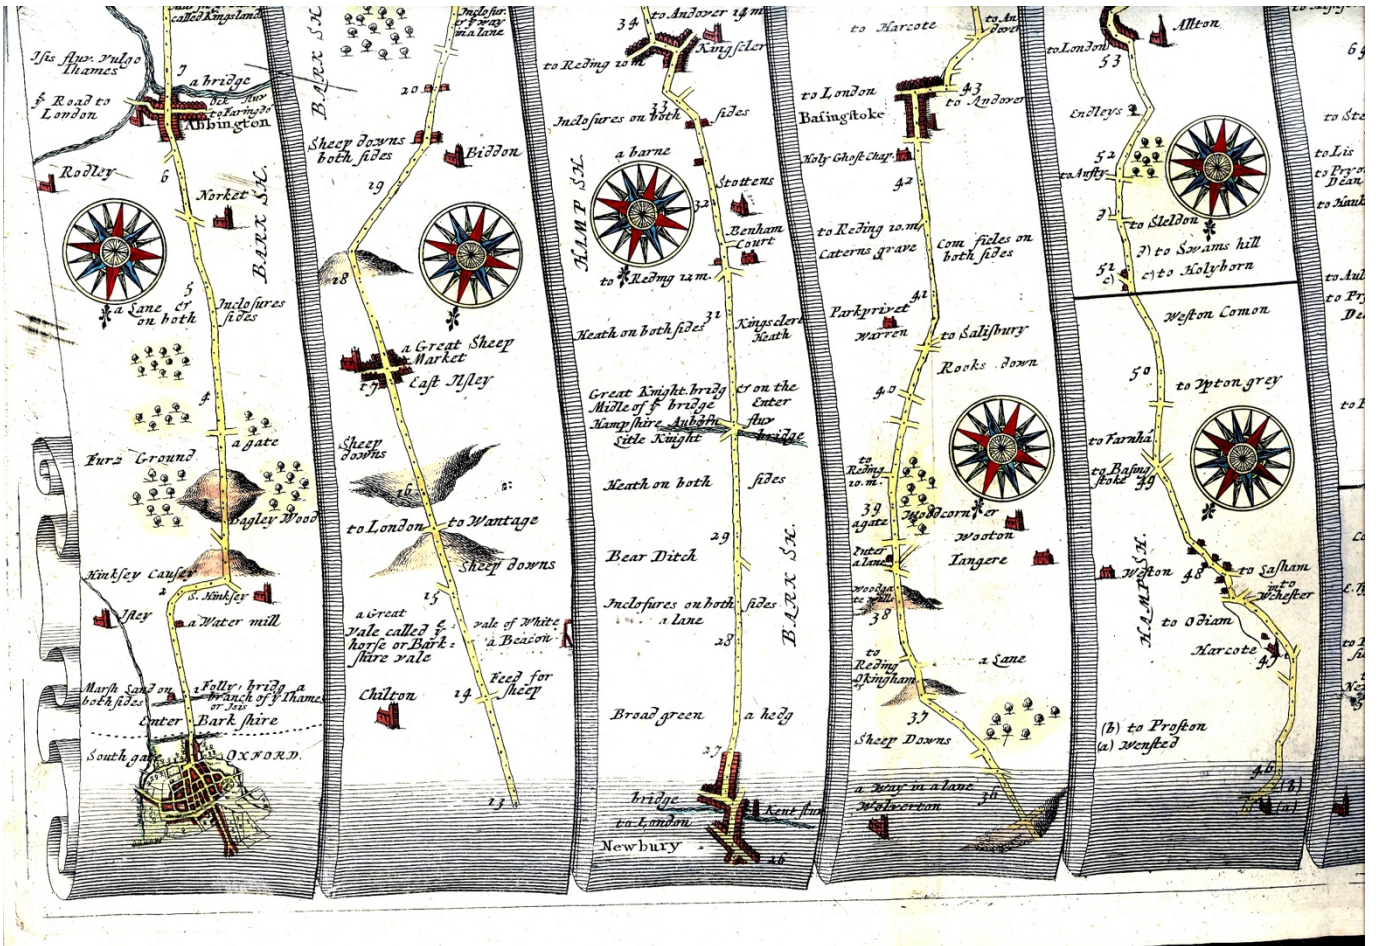 called Kingsland
Isis flur. vulgo
Thames
7
a bridge
Ock flur
to Faringdo
ẙ Road to
London
Abbington
Rodley
6
Norket
BARK SH.
5
a Lane &
on both
Inclosures
sides
4
a gate
Furz Ground
Bagley Wood
Hinksey Causey
2
S. Hinksey
Ifley
a Water mill
Marsh Land on
both sides
1
Folly bridg a
branch of ẙ Thames
or Isis
Enter Bark shire
South gate
OXFORD.
BARK SH.
Inclosur.
es ẙ way
in a lane
20
Sheep downs
both sides
Biddon
19
18
a Great Sheep
Market
17
East Ilsley
Sheep
downs
16
to London
to Wantage
Sheep downs
15
a Great
vale called ẙ
horse or Bark=
shire vale
vale of White
a Beacon
Chilton
14
Feed for
sheep
13
34
to Andover 14 m
Kingscler
to Reding 20 m
33
Inclosures on both sides
HAMP SH.
a barne
Stottens
32
Benham
Court
to Reding 12 m.
31
Heath on both sides
Kingscler
Heath
Great Knight. bridg & on the
Midle of ẙ bridge Enter
Hampshire Auborn flur
Litle Knight bridge
Heath on both sides
29
Bear Ditch
BARK SH.
Inclosures on both sides
a lane
28
Broad green
a hedg
27
bridge
Kent flur
to London
Newbury
26
to Harcote
to An
dover
43
to London
to Andover
Basingstoke
Holy Ghost Chap.
42
to Reding 10. m
Caterns grave
Corn fieles on
both sides
41
Parkprivet
Warren
to Salisbury
Rooks down
40
to
Reding
10. m.
39
a gate
Woodcorner
Wooton
Enter
a lane
Tangere
Woodga
te Hills
38
to
Reding
Okingham
a Lane
37
Sheep Downs
36
a Way in a lane
Wolverton
Allton
to London
53
Endleys
52
to Ansty
d)
to Sleldon
d) to Swams hill
51
c)
c) to Holyborn
Weston Comon
50
to Vpton grey
to Farnhā
to Basing
stoke
49
HAMP SH.
Weston
48
to Lasham
in to
Wchester
to Odiam
Harcote
47
(b) to Proston
(a) Wensted
46
(b)
(a)
to Ste
to Lis
to Pryor
Dean
to Hauk
to Aul
to Pry
De